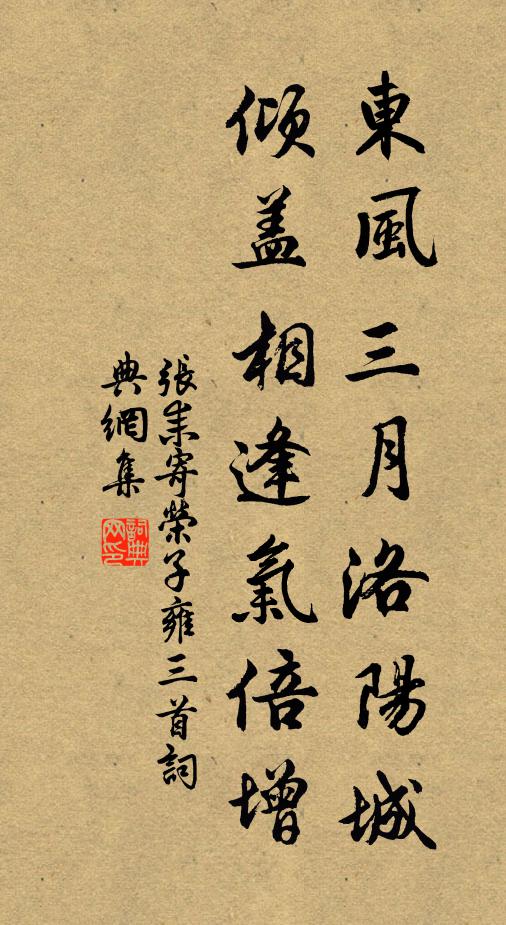 東風三月洛陽城
傾盖相逢氣倍增
張耒寄榮子雍三首詞
典網集
詞典网印